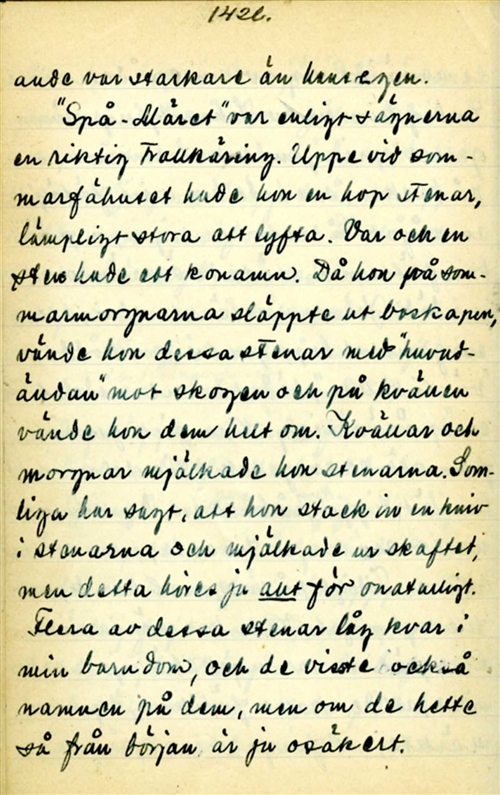 1426.
ande var starkare än hans egen.
"Spå-Märet" var enligt sägnerna
en riktig Trollkäring. Uppe vid som-
marfähuset hade hon en hop stenar,
lämpligt stora att lyfta. Var och en
sten hade ett konamn. Då hon på som-
marmorgnarna släppte ut boskapen,
vände hon dessa stenar med "huvud-
ändan" mot skogen och på kvällen
vände hon dem helt om. Kvällar och
morgnar mjälkade hon stenarna. Som-
liga har sagt, att hon stack in en kniv
i stenarna och mjälkade ur skaftet,
men detta höres ju allt för onaturligt.
Flera av dessa stenar låg kvar i
min barndom, och de visste också
namnen på dem, men om de hette
så från början, är ju osäkert.